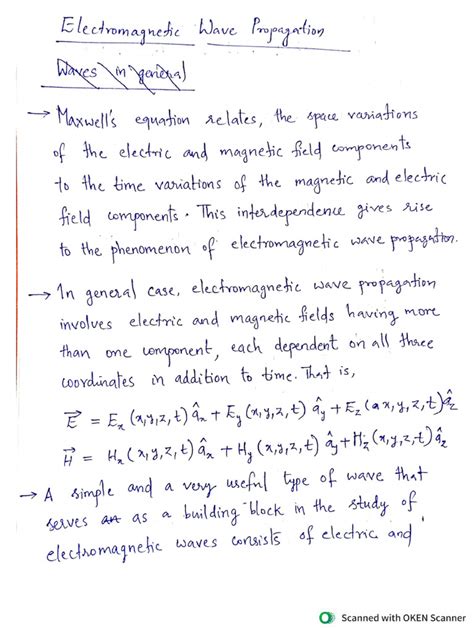 Electromagnetic Wave Propagation
Waves in general
→ Maxwell's equation relates, the space variations
of the electric and magnetic field components
to the time variations of the magnetic and electric
field components. This interdependence gives rise
to the phenomenon of electromagnetic wave propagation.
→ In general case, electromagnetic wave propagation
involves electric and magnetic fields having more
than one component, each dependent on all three
coordinates in addition to time. That is,
E⃗ = Eₓ(x,y,z,t) âₓ + E_y(x,y,z,t) â_y + E_z(x,y,z,t) â_z
H⃗ = Hₓ(x,y,z,t) âₓ + H_y(x,y,z,t) â_y + H_z(x,y,z,t) â_z
→ A simple and a very useful type of wave that
serves as a building-block in the study of
electromagnetic waves consists of electric and
Scanned with OKEN Scanner